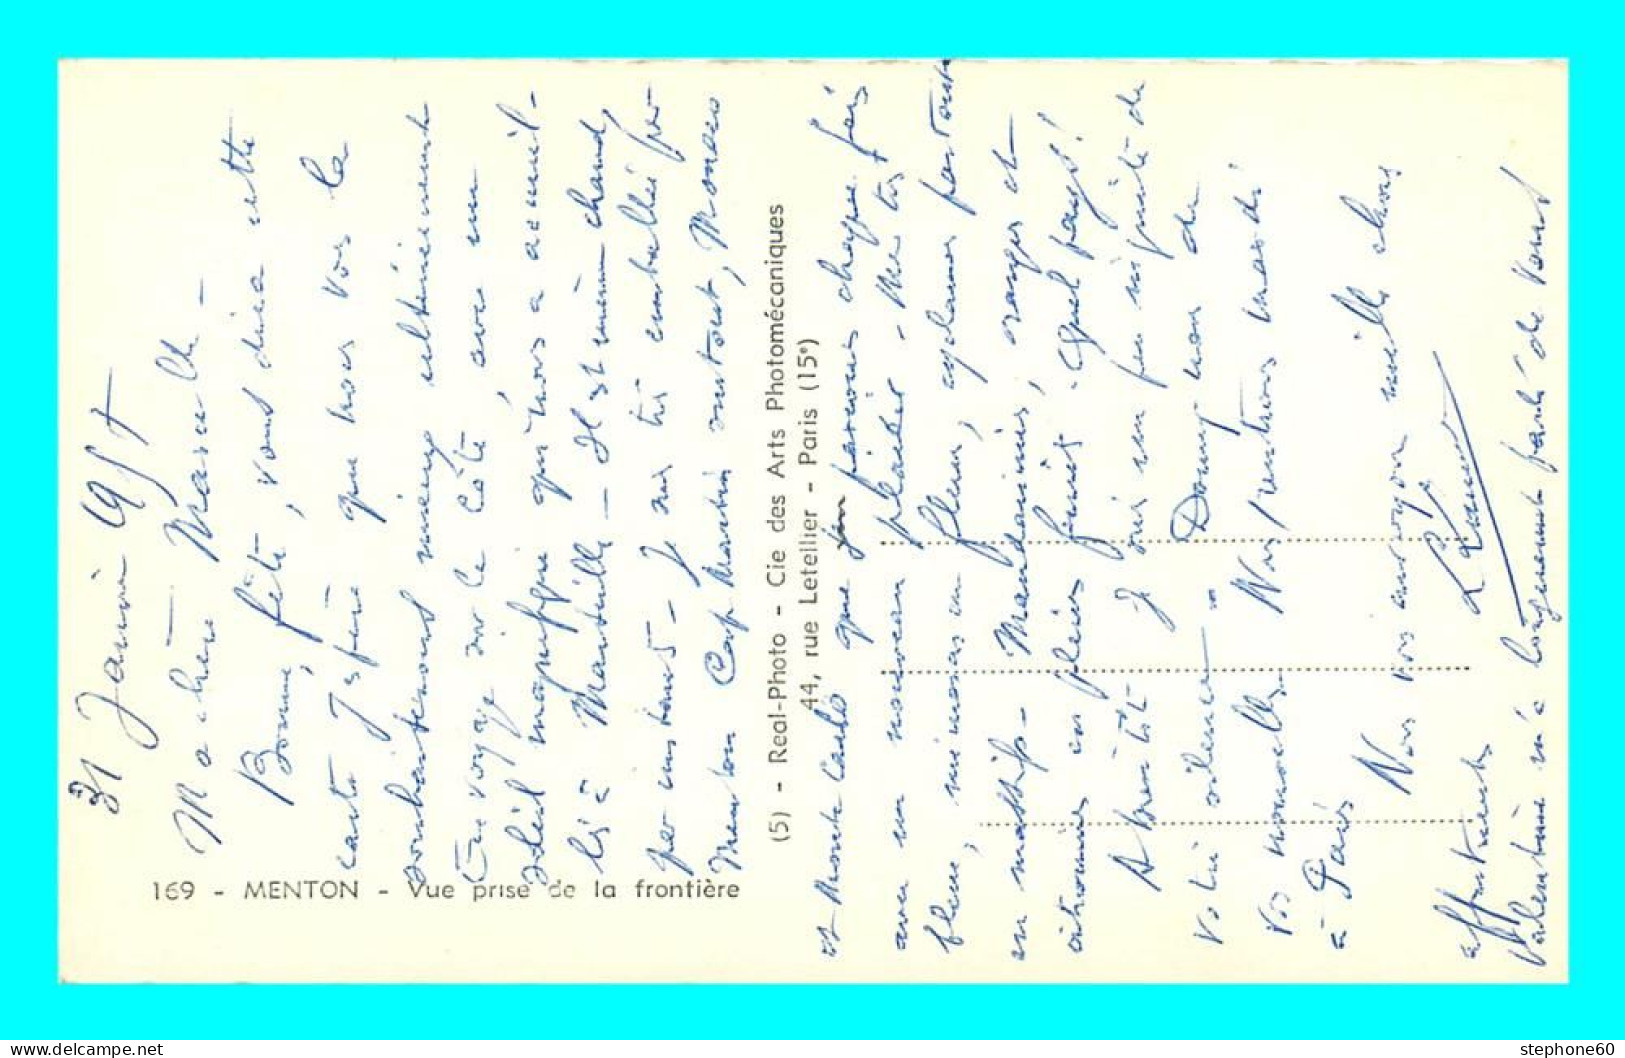 31 Janvier 1957
Ma chère Marcelle -
Bonne fête, vous dira cette
carte J'espère que nous vous la
souhaiterons mieux ultérieurement
En voyage sur la Côte avec un
soleil magnifique qui nous a accueil-
lis à Marseille - Il est même chaud
par instants - Je suis très emballée par
Menton Cap Martin surtout, Monaco
et Monte Carlo que nous faisons chaque fois
avec un nouveau plaisir -
fleurs, mimosas en fleurs, cyclamens partout
en massifs - Mandarines, oranges et
citronniers en pleins fruits - Quel pays!
A bientôt Je suis un peu inquiète de
votre silence - Donnez nous de
vos nouvelles Nous rentrons mardi
à Paris
Nous vous envoyons mille choses
affectueuses
Valentine m'a longuement parlé de vous
169 - MENTON - Vue prise de la frontière
(5) - Real-Photo - Cie des Arts Photomécaniques
44, rue Letellier - Paris (15e)
delcampe.net
stephone60